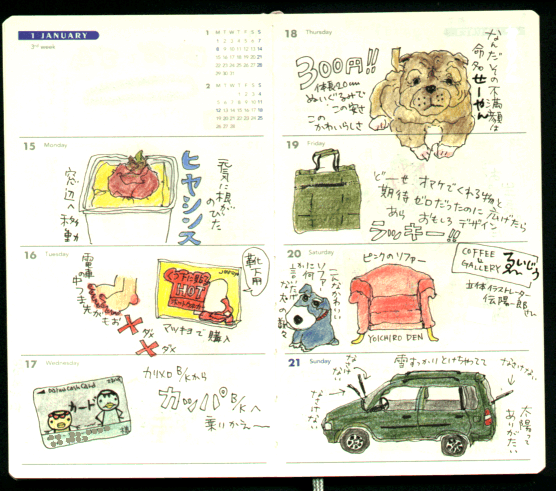 1 JANUARY
3rd week
1 M T W T F S S
1 2 3 4 5 6 7
8 9 10 11 12 13 14
15 16 17 18 19 20 21
22 23 24 25 26 27 28
29 30 31
2 M T W T F S S
1 2 3 4
5 6 7 8 9 10 11
12 13 14 15 16 17 18
19 20 21 22 23 24 25
26 27 28
15 Monday
窓辺へ移動
ヒヤシンス
元気に根がのびた
16 Tuesday
電車の中
つま先がもお
ダメ
ダメ
くつ下に貼る
HOT
靴下用
マツキヨで購入
17 Wednesday
カード
カリメロB/Kから
カッパB/Kへ
乗りかえ〜
18 Thursday
300円!!
体長20cm
ぬいぐるみで
この安さ
この
かわいらしさ
なんだ その不満顔は
命名 せーやん
19 Friday
どーせ オマケでくれる物と
期待ゼロだったのに 広げてたら
あら おもしろデザイン
ラッキー!!
20 Saturday
ピンクのソファー
YOICHIRO DEN
COFFEE & GALLERY
立体イラストレーター
伝 陽一郎さん
21 Sunday
雪すっかりとけちゃってて
なさけない
なさけない
なさけない
太陽って
ありがたい